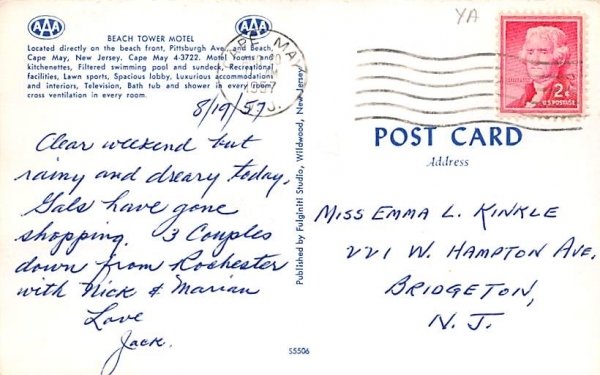 YA
AAA
AAA
BEACH TOWER MOTEL
Located directly on the beach front, Pittsburgh Ave. and Beach,
Cape May, New Jersey. Cape May 4-3722. Motel rooms and
kitchenettes, Filtered swimming pool and sundeck, Recreational
facilities, Lawn sports, Spacious lobby, Luxurious accommodations
and interiors, Television, Bath tub and shower in every room
cross ventilation in every room.
CAPE MAY
1957
N.J.
2¢
U.S. POSTAGE
8/19/57
Clear weekend but
rainy and dreary today,
Gals have gone
shopping. 3 Couples
down from Rochester
with Nick & Marian
Love
Jack.
Published by Fulginiti Studio, Wildwood, New Jersey
S5506
POST CARD
Address
MISS EMMA L. KINKLE
221 W. HAMPTON AVE,
BRIDGETON,
N. J.